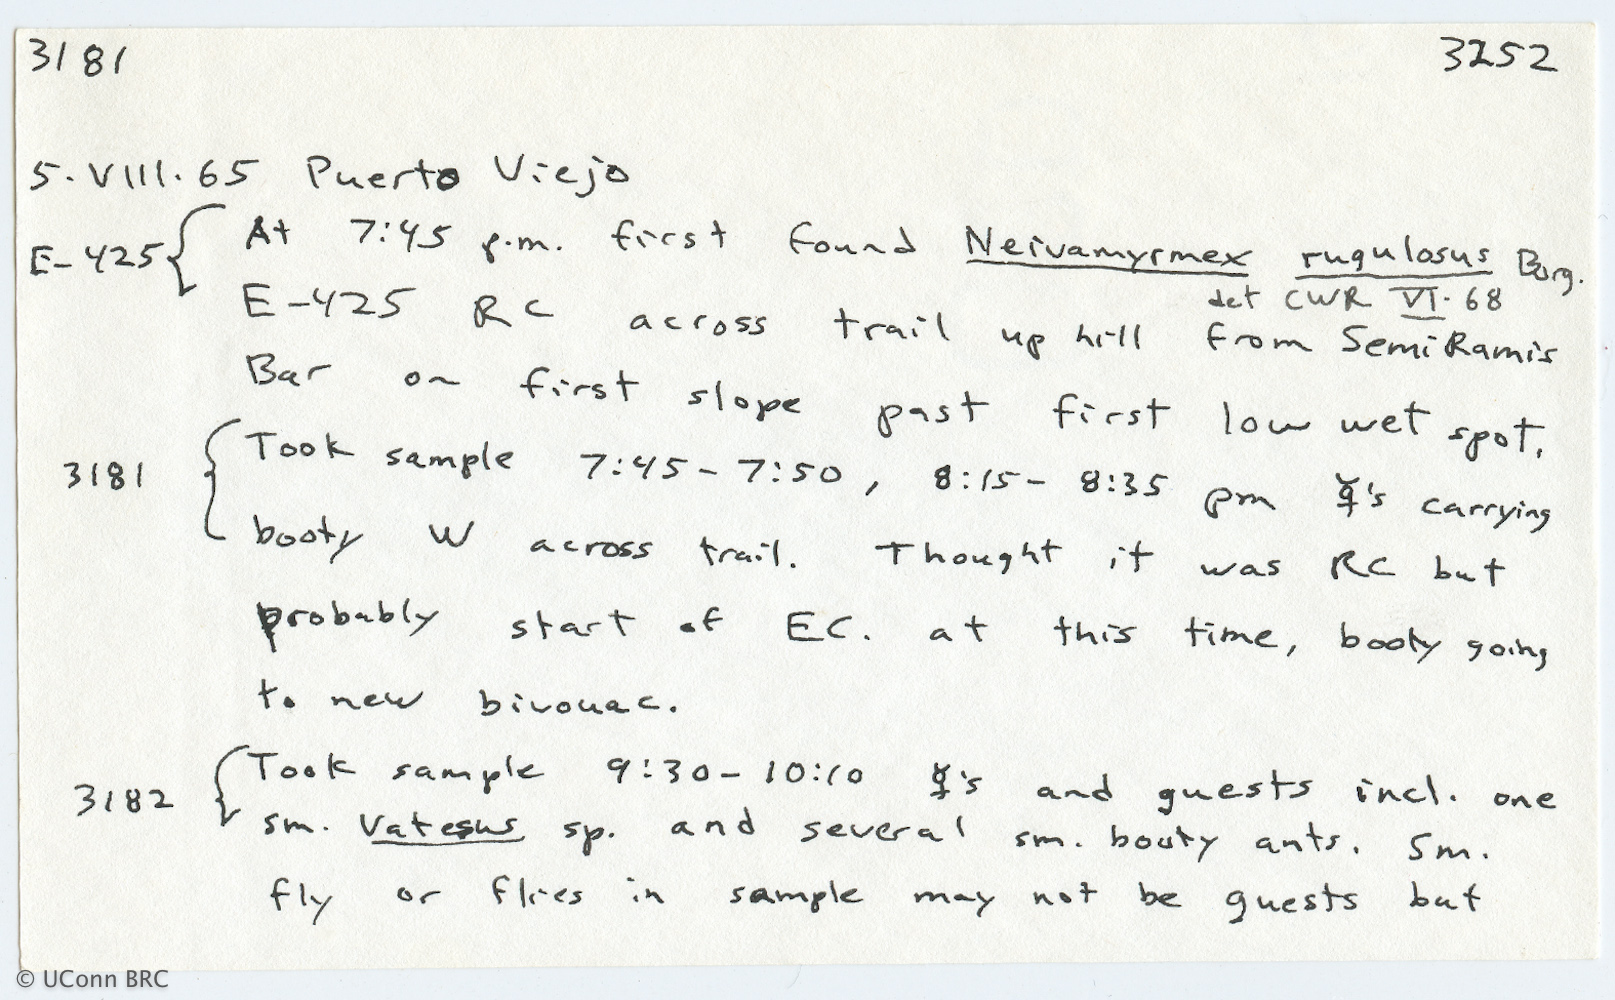 3181 3252
5.VIII.65 Puerto Viejo
E-425 { At 7:45 p.m. first found Neivamyrmex rugulosus Borg.
det CWR VI.68
E-425 RC across trail up hill from SemiRamis
Bar on first slope past first low wet spot.
3181 { Took sample 7:45-7:50, 8:15-8:35 pm ☿'s carrying
booty W across trail. Thought it was RC but
probably start of EC. at this time, booty going
to new bivouac.
3182 { Took sample 9:30-10:10 ☿'s and guests incl. one
sm. Vatesus sp. and several sm. booty ants. Sm.
fly or flies in sample may not be guests but
© UConn BRC